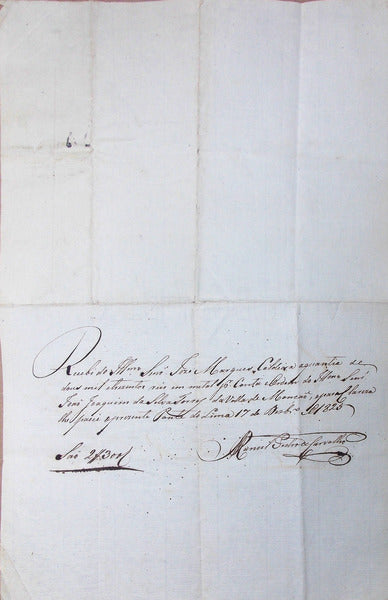 Recebi do Illmo Snr José Marques Caldeira a quantia de
dous mil e trezentos reis em metal pr Conta e Ordem do Illmo Snr
José Joaquim da Silva da Villa de Monção, e para clareza
lhe passei o prezente Ponte do Lima 17 de 1825
São 2$300
Manoel de Carvalho